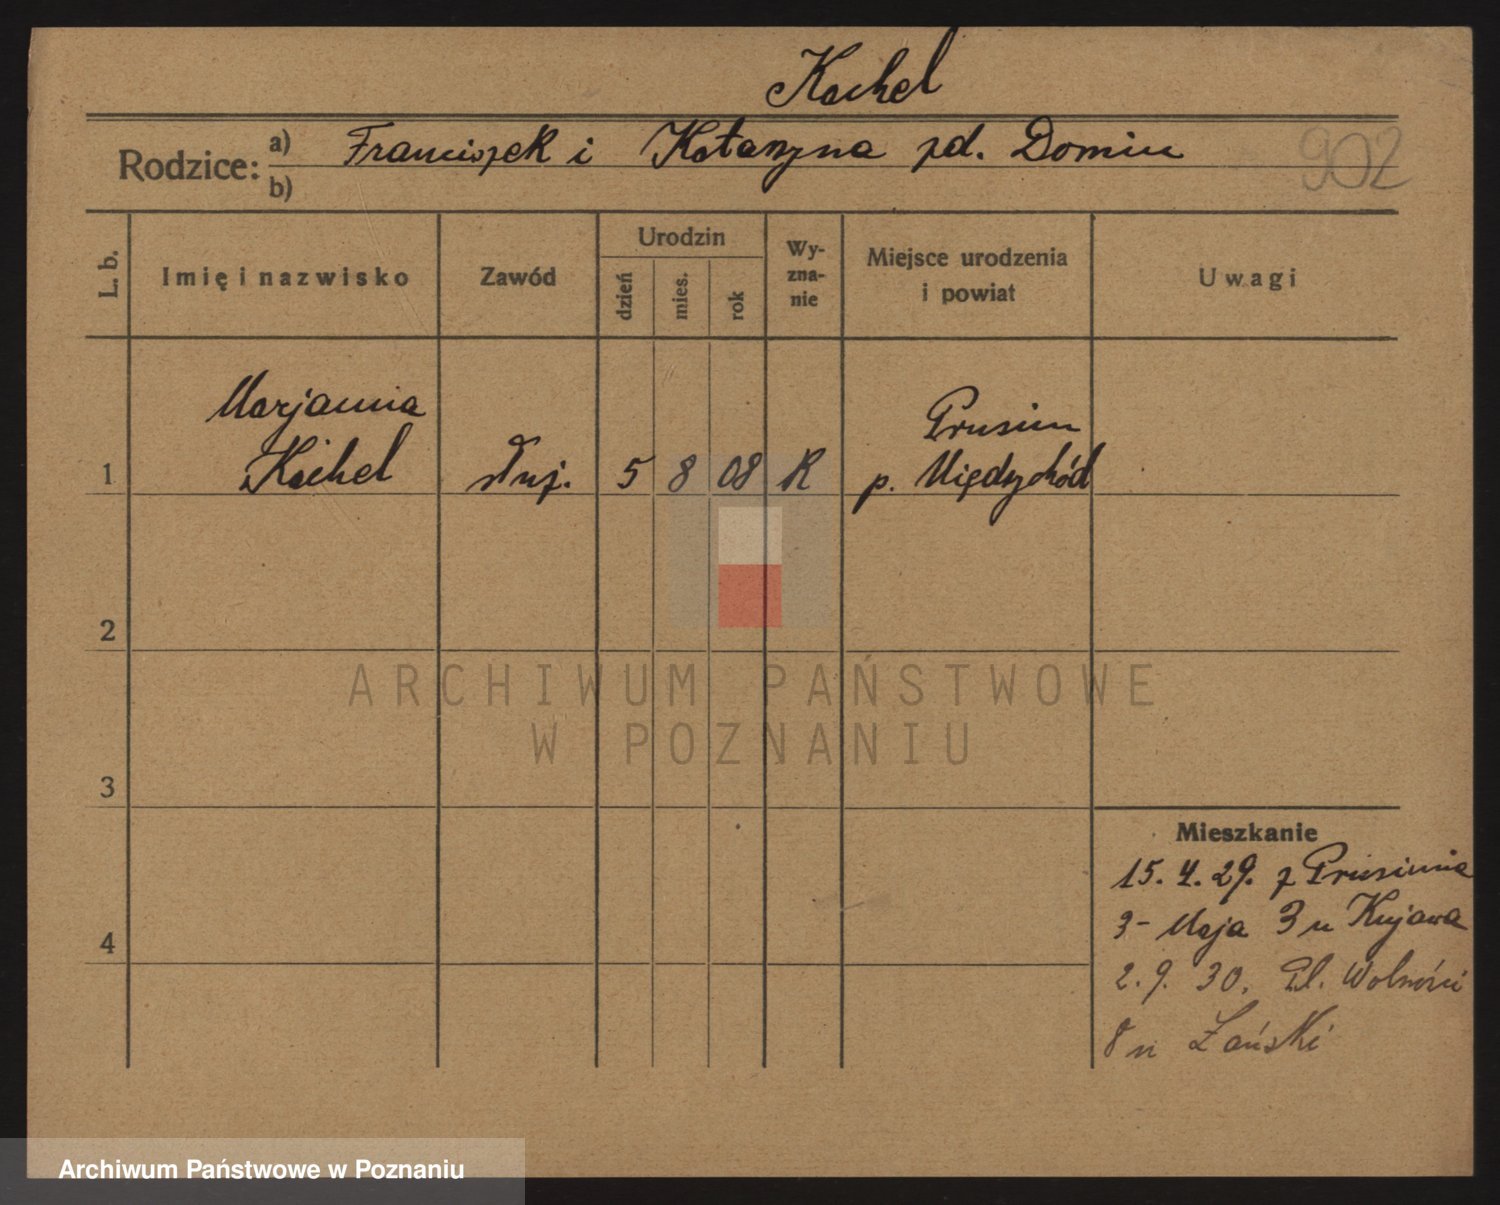 Kachel
Rodzice: a) Franciszek i Katarzyna zd. Domin
b)
902
L. b.
Imię i nazwisko
Zawód
Urodzin
dzień
mies.
rok
Wy-
zna-
nie
Miejsce urodzenia
i powiat
Uwagi
Marjanna
1 Kachel służ. 5 8 08 R
Prusim
p. Międzychód
2
3
4
Mieszkanie
15. 4. 29. z Prusimia
3 - Maja 3 u Kujawa
2. 9. 30. Pl. Wolności
8 u Łański
ARCHIWUM PAŃSTWOWE
W POZNANIU
Archiwum Państwowe w Poznaniu